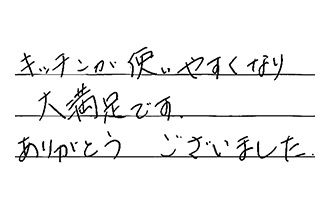 キッチンが使いやすくなり
大満足です.
ありがとう ございました.